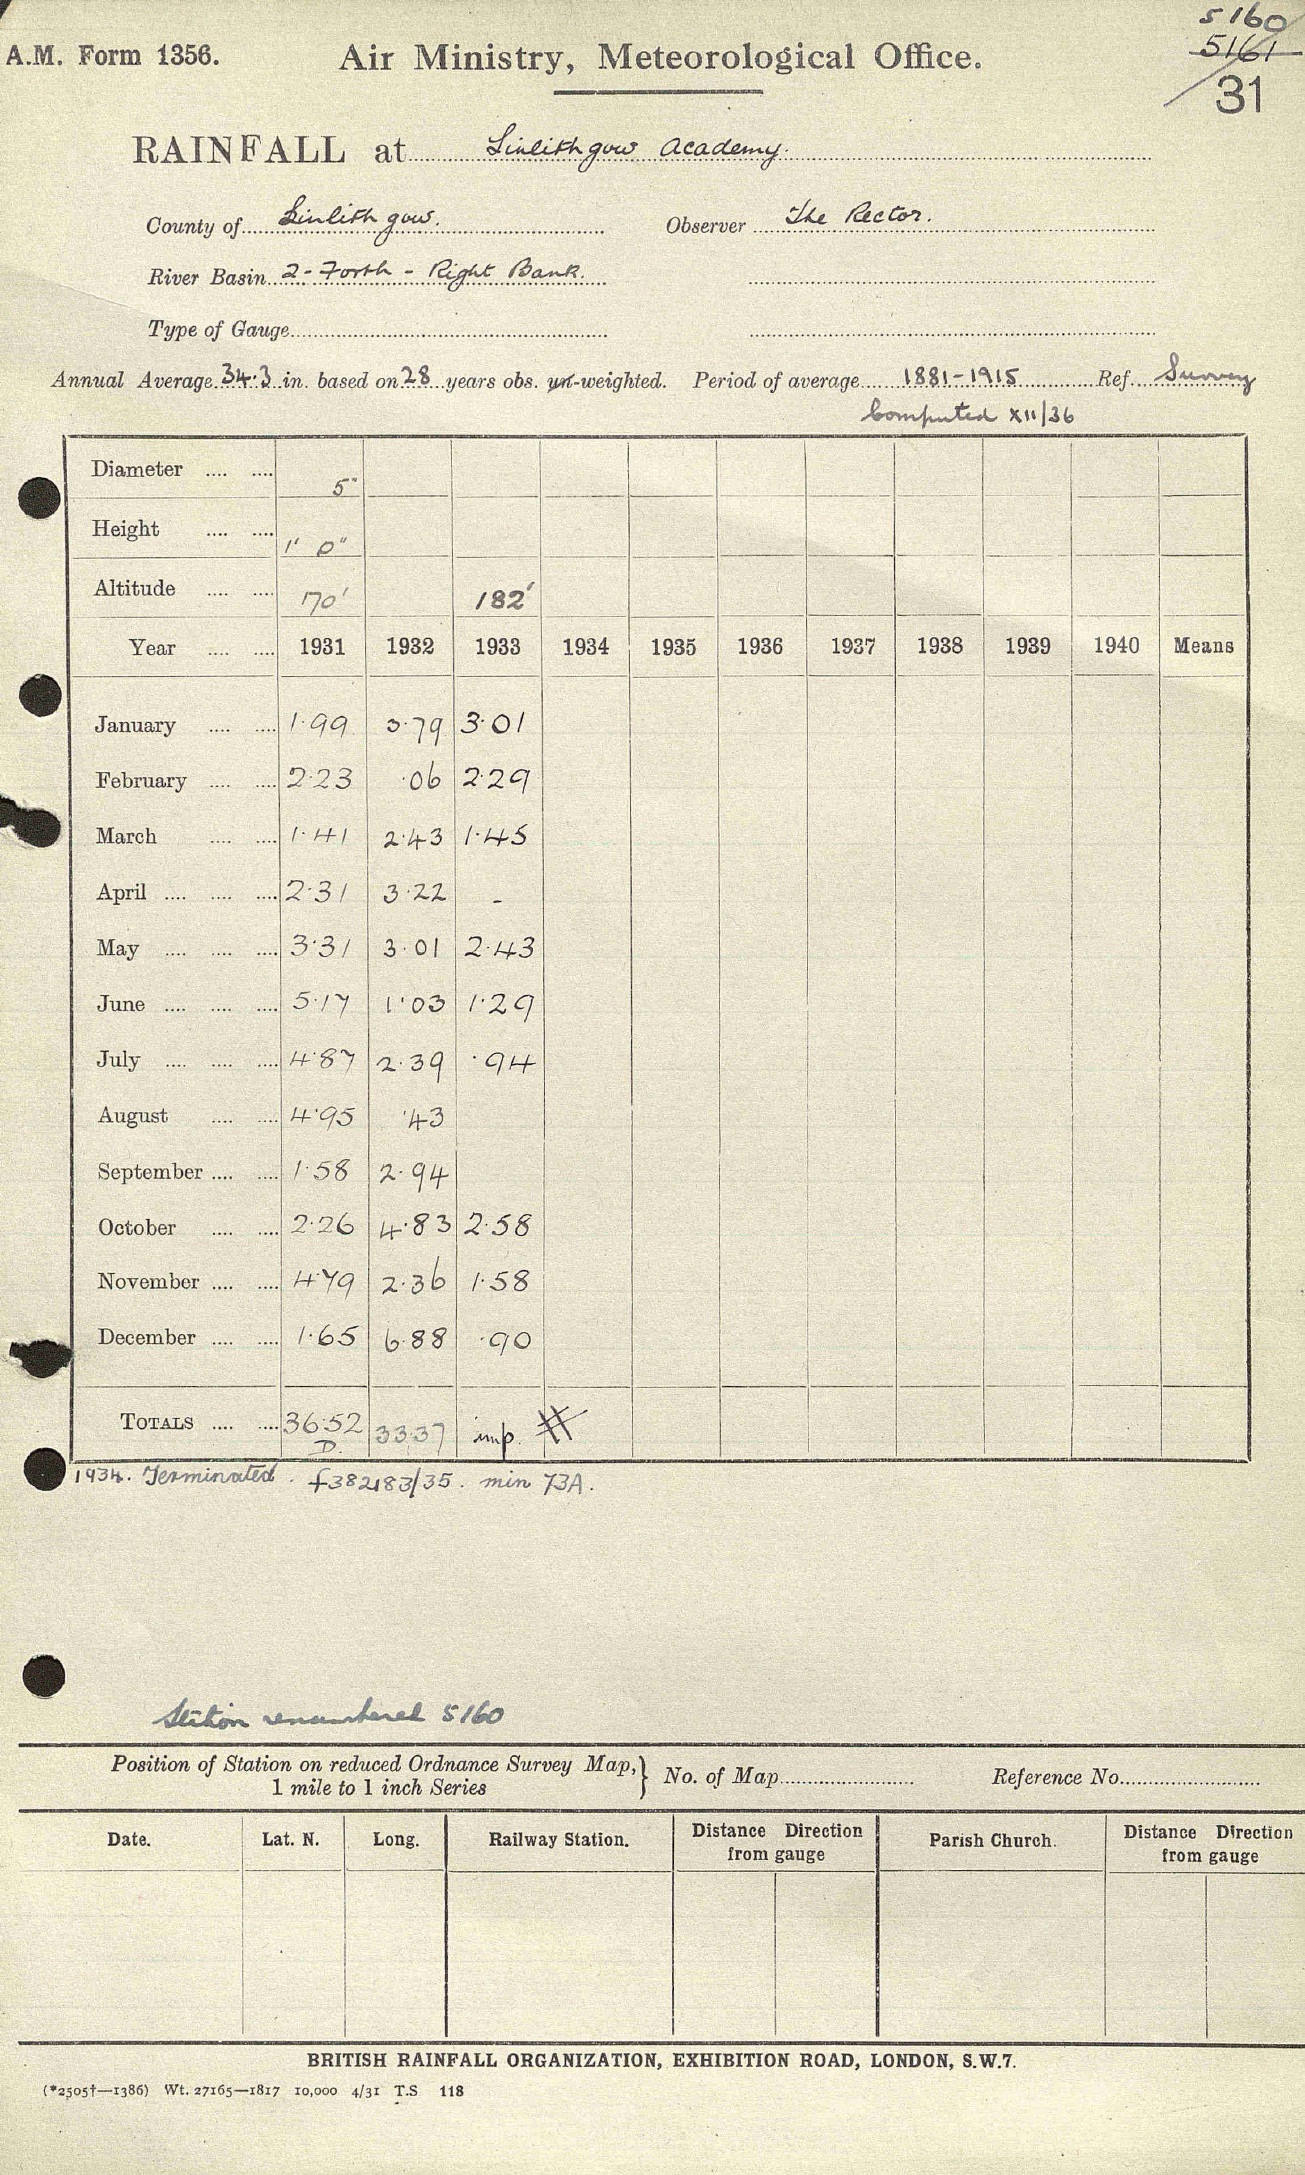 5160
A.M. Form 1356. Air Ministry, Meteorological Office. 5161
31
RAINFALL at Linlithgow Academy.
County of Linlithgow. Observer The Rector.
River Basin 2 - Forth - Right Bank.
Type of Gauge
Annual Average 34.3 in. based on 28 years obs. un-weighted. Period of average 1881-1915 Ref. Survey
Computed XII/36
Diameter .... .... 5"
Height .... .... 1' 0"
Altitude .... .... 70' 182'
Year .... .... 1931 1932 1933 1934 1935 1936 1937 1938 1939 1940 Means
January .... .... 1.99 3.79 3.01
February .... .... 2.23 .06 2.29
March .... .... 1.41 2.43 1.45
April .... .... .... 2.31 3.22 -
May .... .... .... 3.31 3.01 2.43
June .... .... .... 5.17 1.03 1.29
July .... .... .... 4.87 2.39 .94
August .... .... 4.95 .43
September .... .... 1.58 2.94
October .... .... 2.26 4.83 2.58
November .... .... 4.79 2.36 1.58
December .... .... 1.65 6.88 .90
TOTALS .... .... 36.52 33.37 imp.
D.
1934. Terminated. f382183/35. min 73A.
Station renumbered 5160
Position of Station on reduced Ordnance Survey Map, } No. of Map Reference No.
1 mile to 1 inch Series
Date. Lat. N. Long. Railway Station. Distance Direction from gauge Parish Church. Distance Direction from gauge
BRITISH RAINFALL ORGANIZATION, EXHIBITION ROAD, LONDON, S.W.7.
(*2505†—1386) Wt. 27165—1817 10,000 4/31 T.S 118